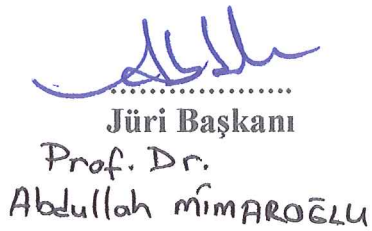 Jüri Başkanı
Prof. Dr.
Abdullah MİMAROĞLU